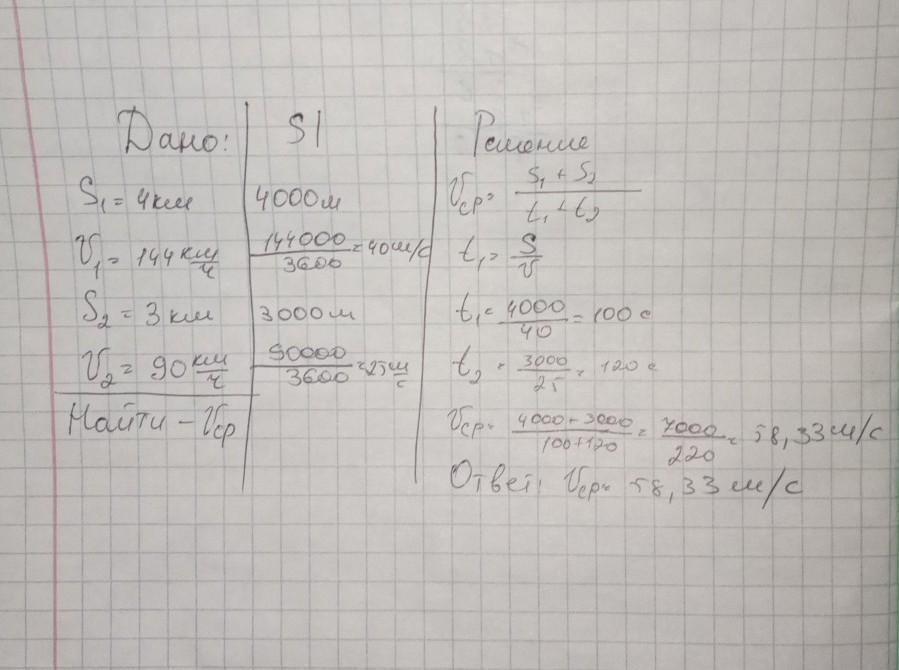 Дано:
S₁ = 4км
V₁ = 144 км/ч
S₂ = 3 км
V₂ = 90 км/ч
Найти - Vср
SI
4000м
144000/3600 = 40м/с
3000м
90000/3600 = 25 м/с
Решение
Vср = (S₁ + S₂)/(t₁ + t₂)
t₁ = S/V
t₁ = 4000/40 = 100 с
t₂ = 3000/25 = 120 с
Vср = (4000+3000)/(100+120) = 7000/220 = 58,33 м/с
Ответ: Vср = 58,33 м/с